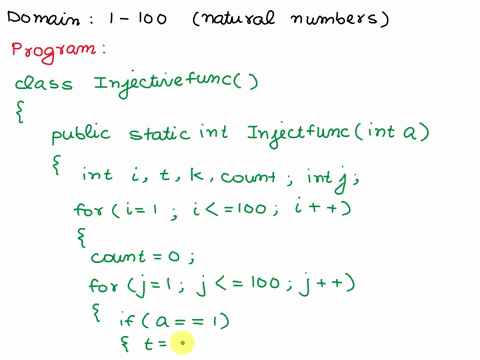 Domain : 1 - 100 (natural numbers)
Program :
class Injectivefunc()
{
public static int Injectfunc(int a)
{ int i, t, k, count ; int j ;
for (i=1 ; i<=100 ; i++)
{
count = 0 ;
for (j=1 ; j<=100 ; j++)
{ if (a == 1)
{ t =